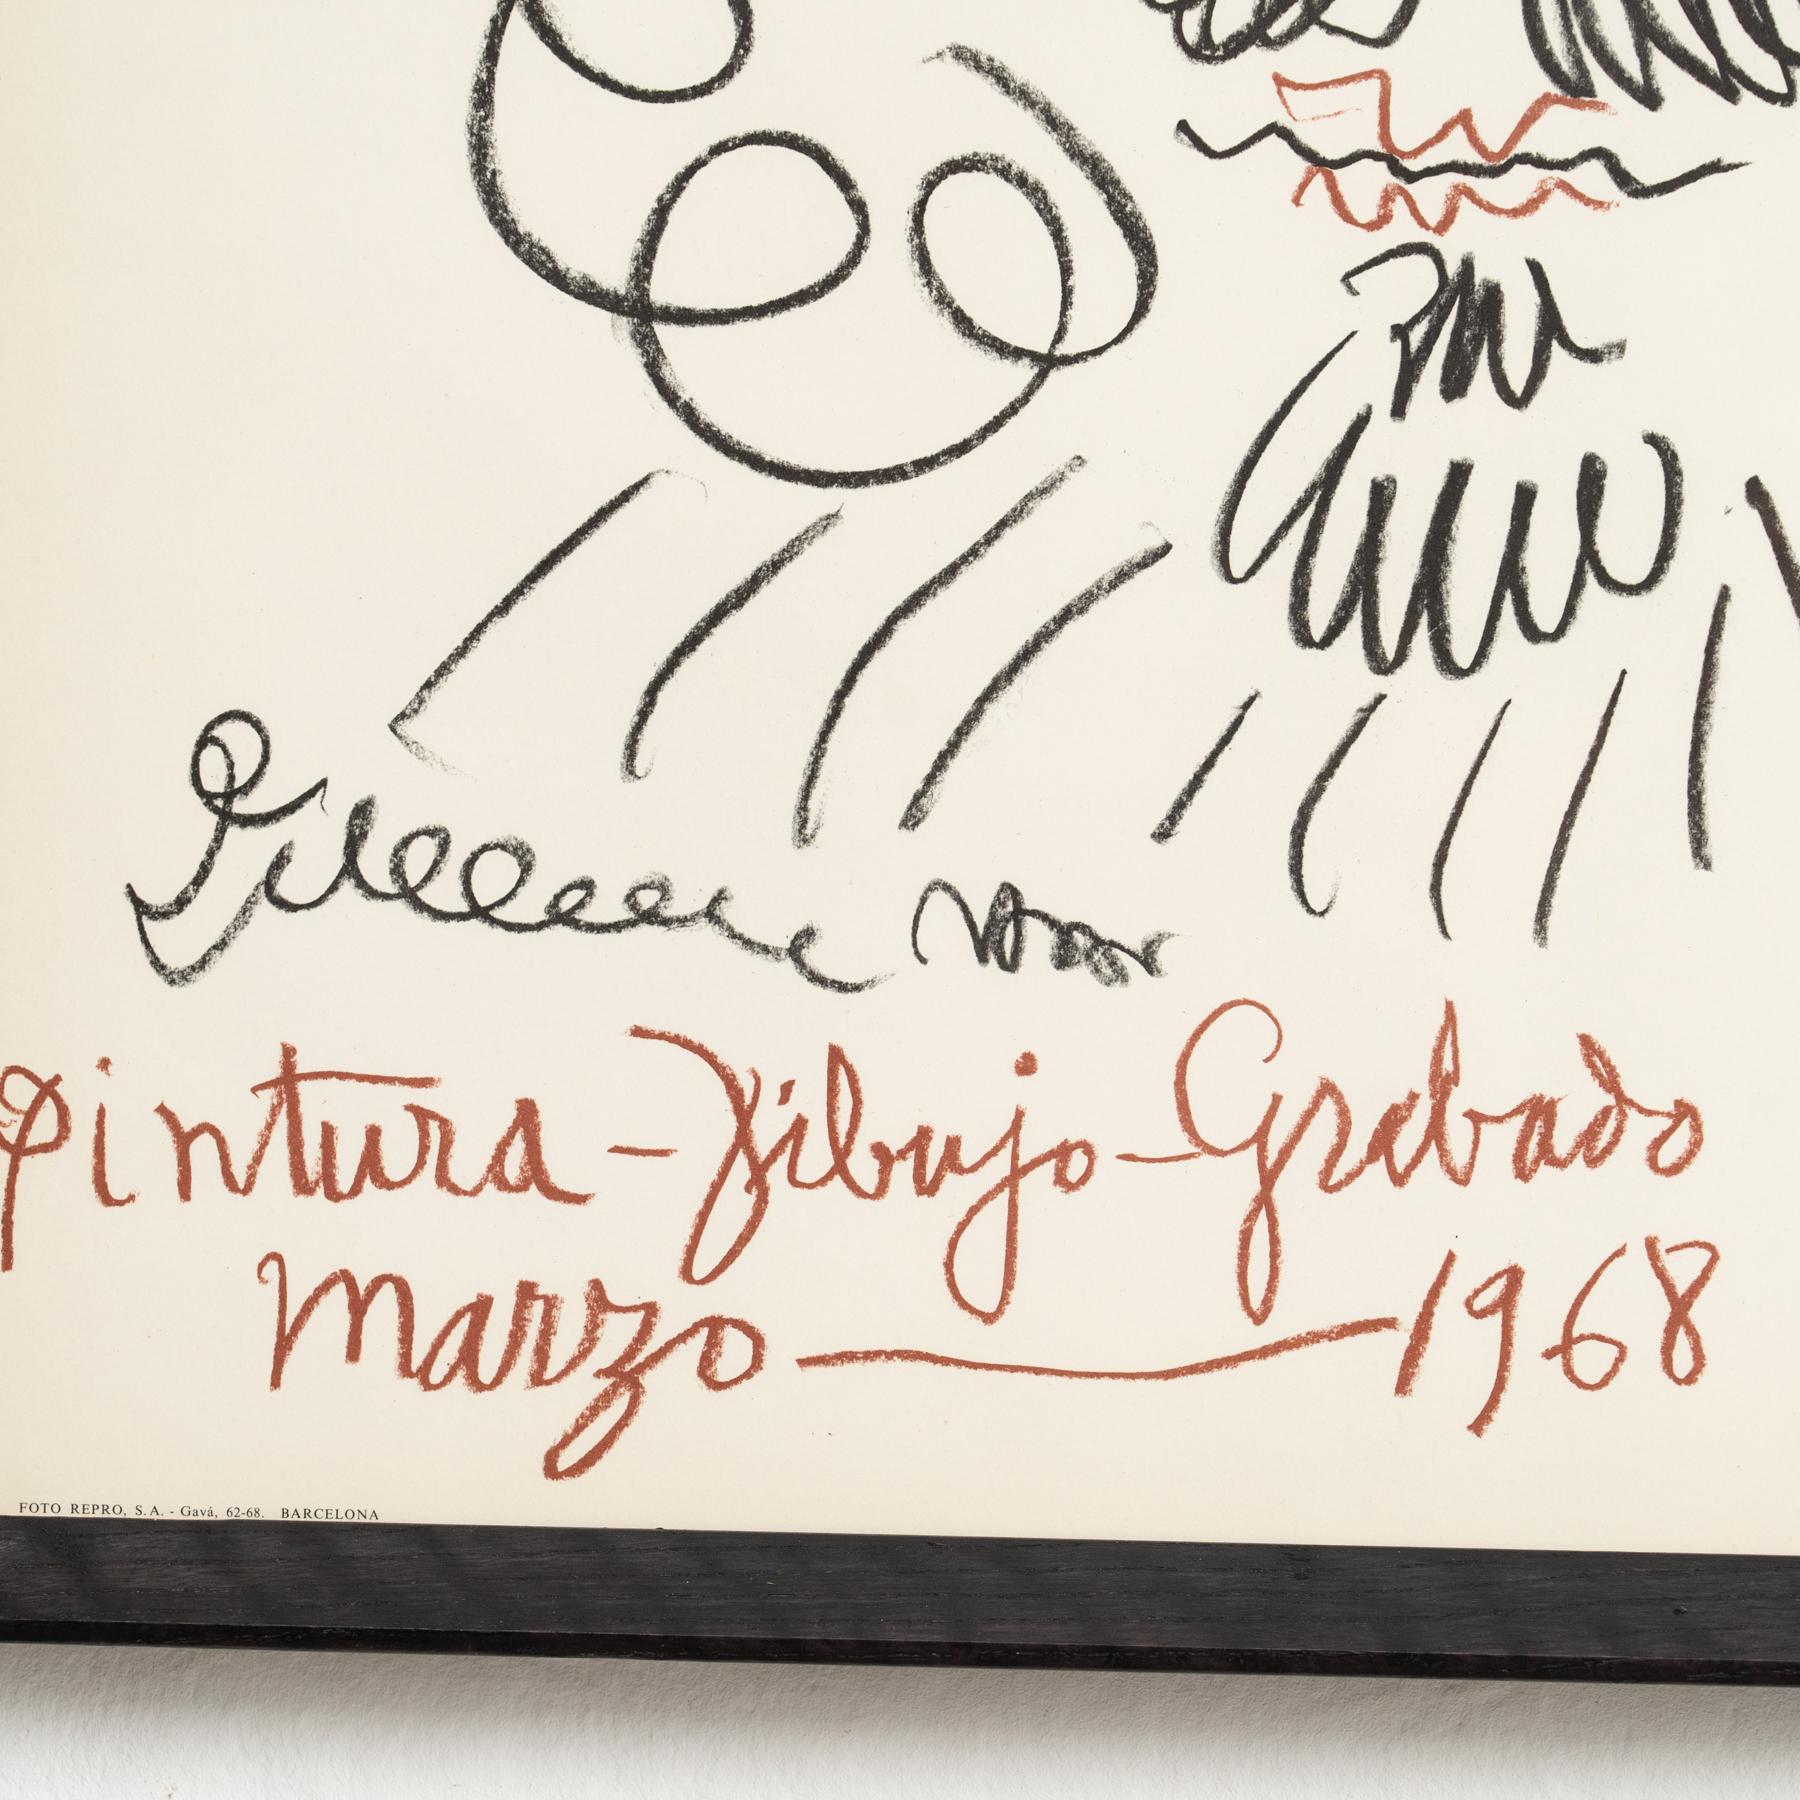 Pintura - Dibujo - Grabado
Marzo — 1968
FOTO REPRO, S.A. - Gavá, 62-68. BARCELONA